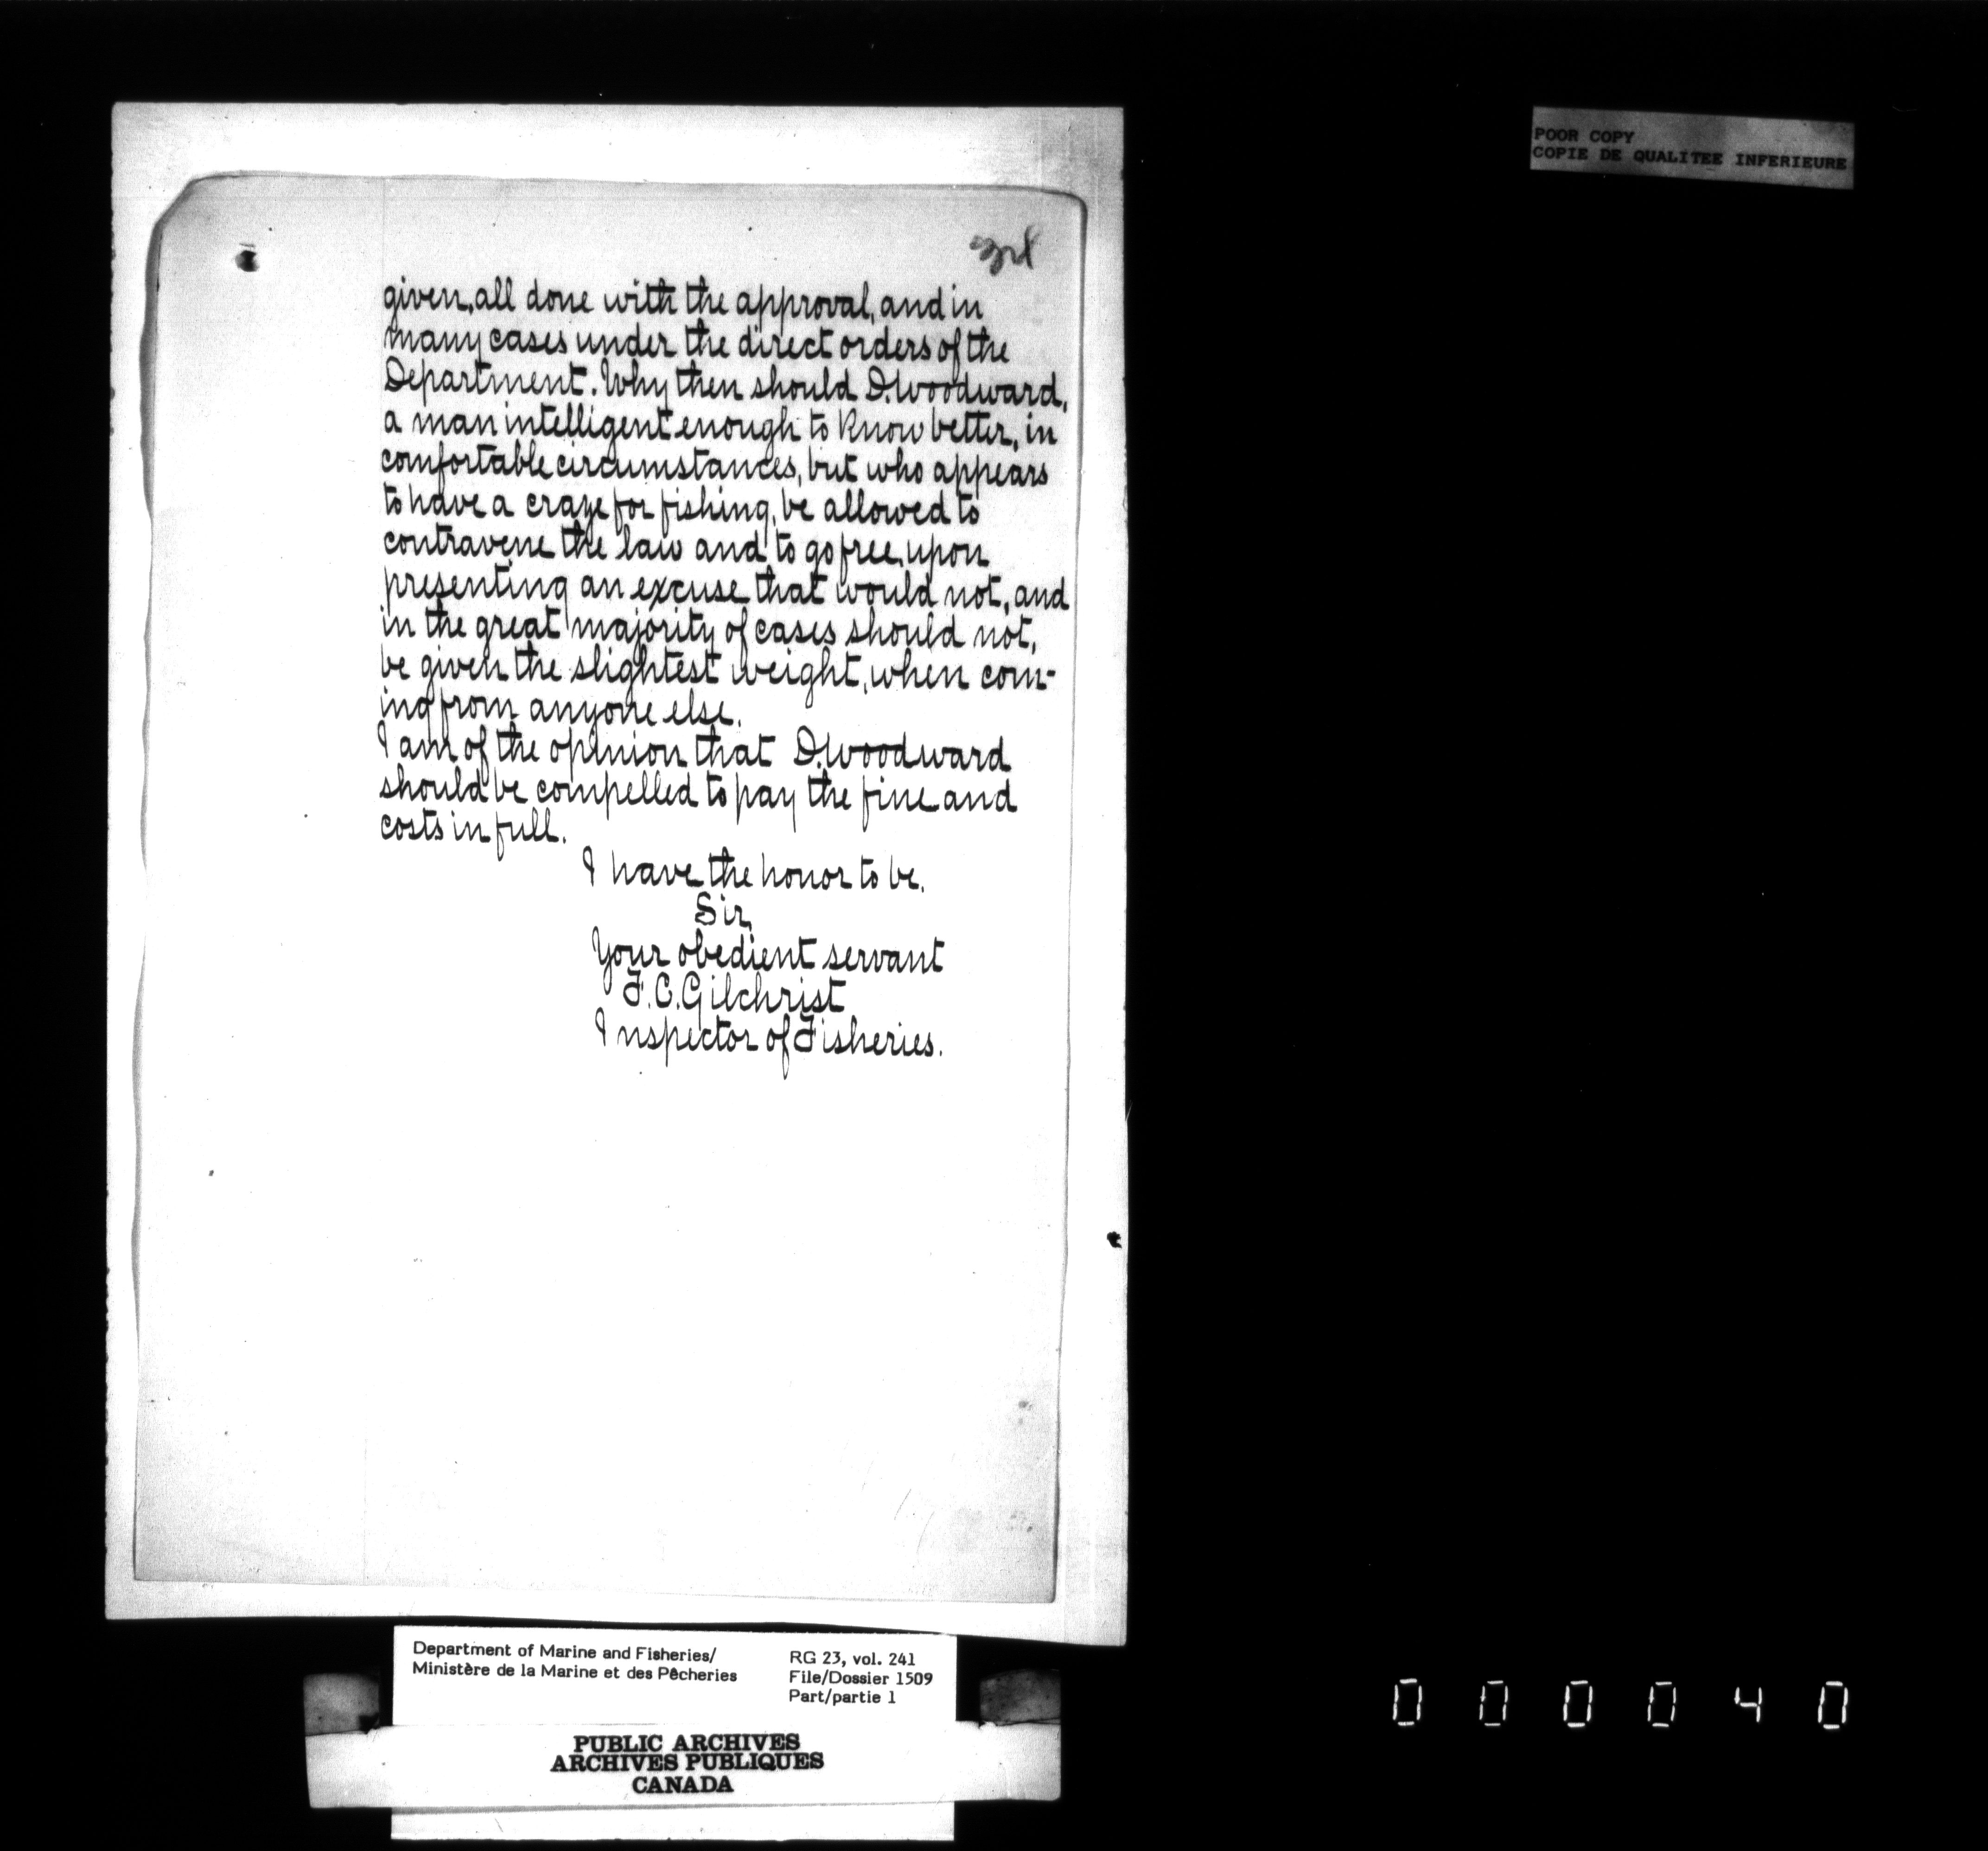 POOR COPY
COPIE DE QUALITEE INFERIEURE
given, all done with the approval, and in
many cases under the direct orders of the
Department. Why then should D. Woodward,
a man intelligent enough to know better, in
comfortable circumstances, but who appears
to have a craze for fishing, be allowed to
contravene the law and to go free, upon
presenting an excuse that would not, and
in the great majority of cases should not,
be given the slightest weight, when com-
ing from anyone else.
I am of the opinion that D. Woodward
should be compelled to pay the fine and
costs in full.
I have the honor to be.
Sir,
Your obedient servant
F. C. Gilchrist
Inspector of Fisheries.
Department of Marine and Fisheries/
Ministère de la Marine et des Pêcheries
RG 23, vol. 241
File/Dossier 1509
Part/partie 1
PUBLIC ARCHIVES
ARCHIVES PUBLIQUES
CANADA
000040